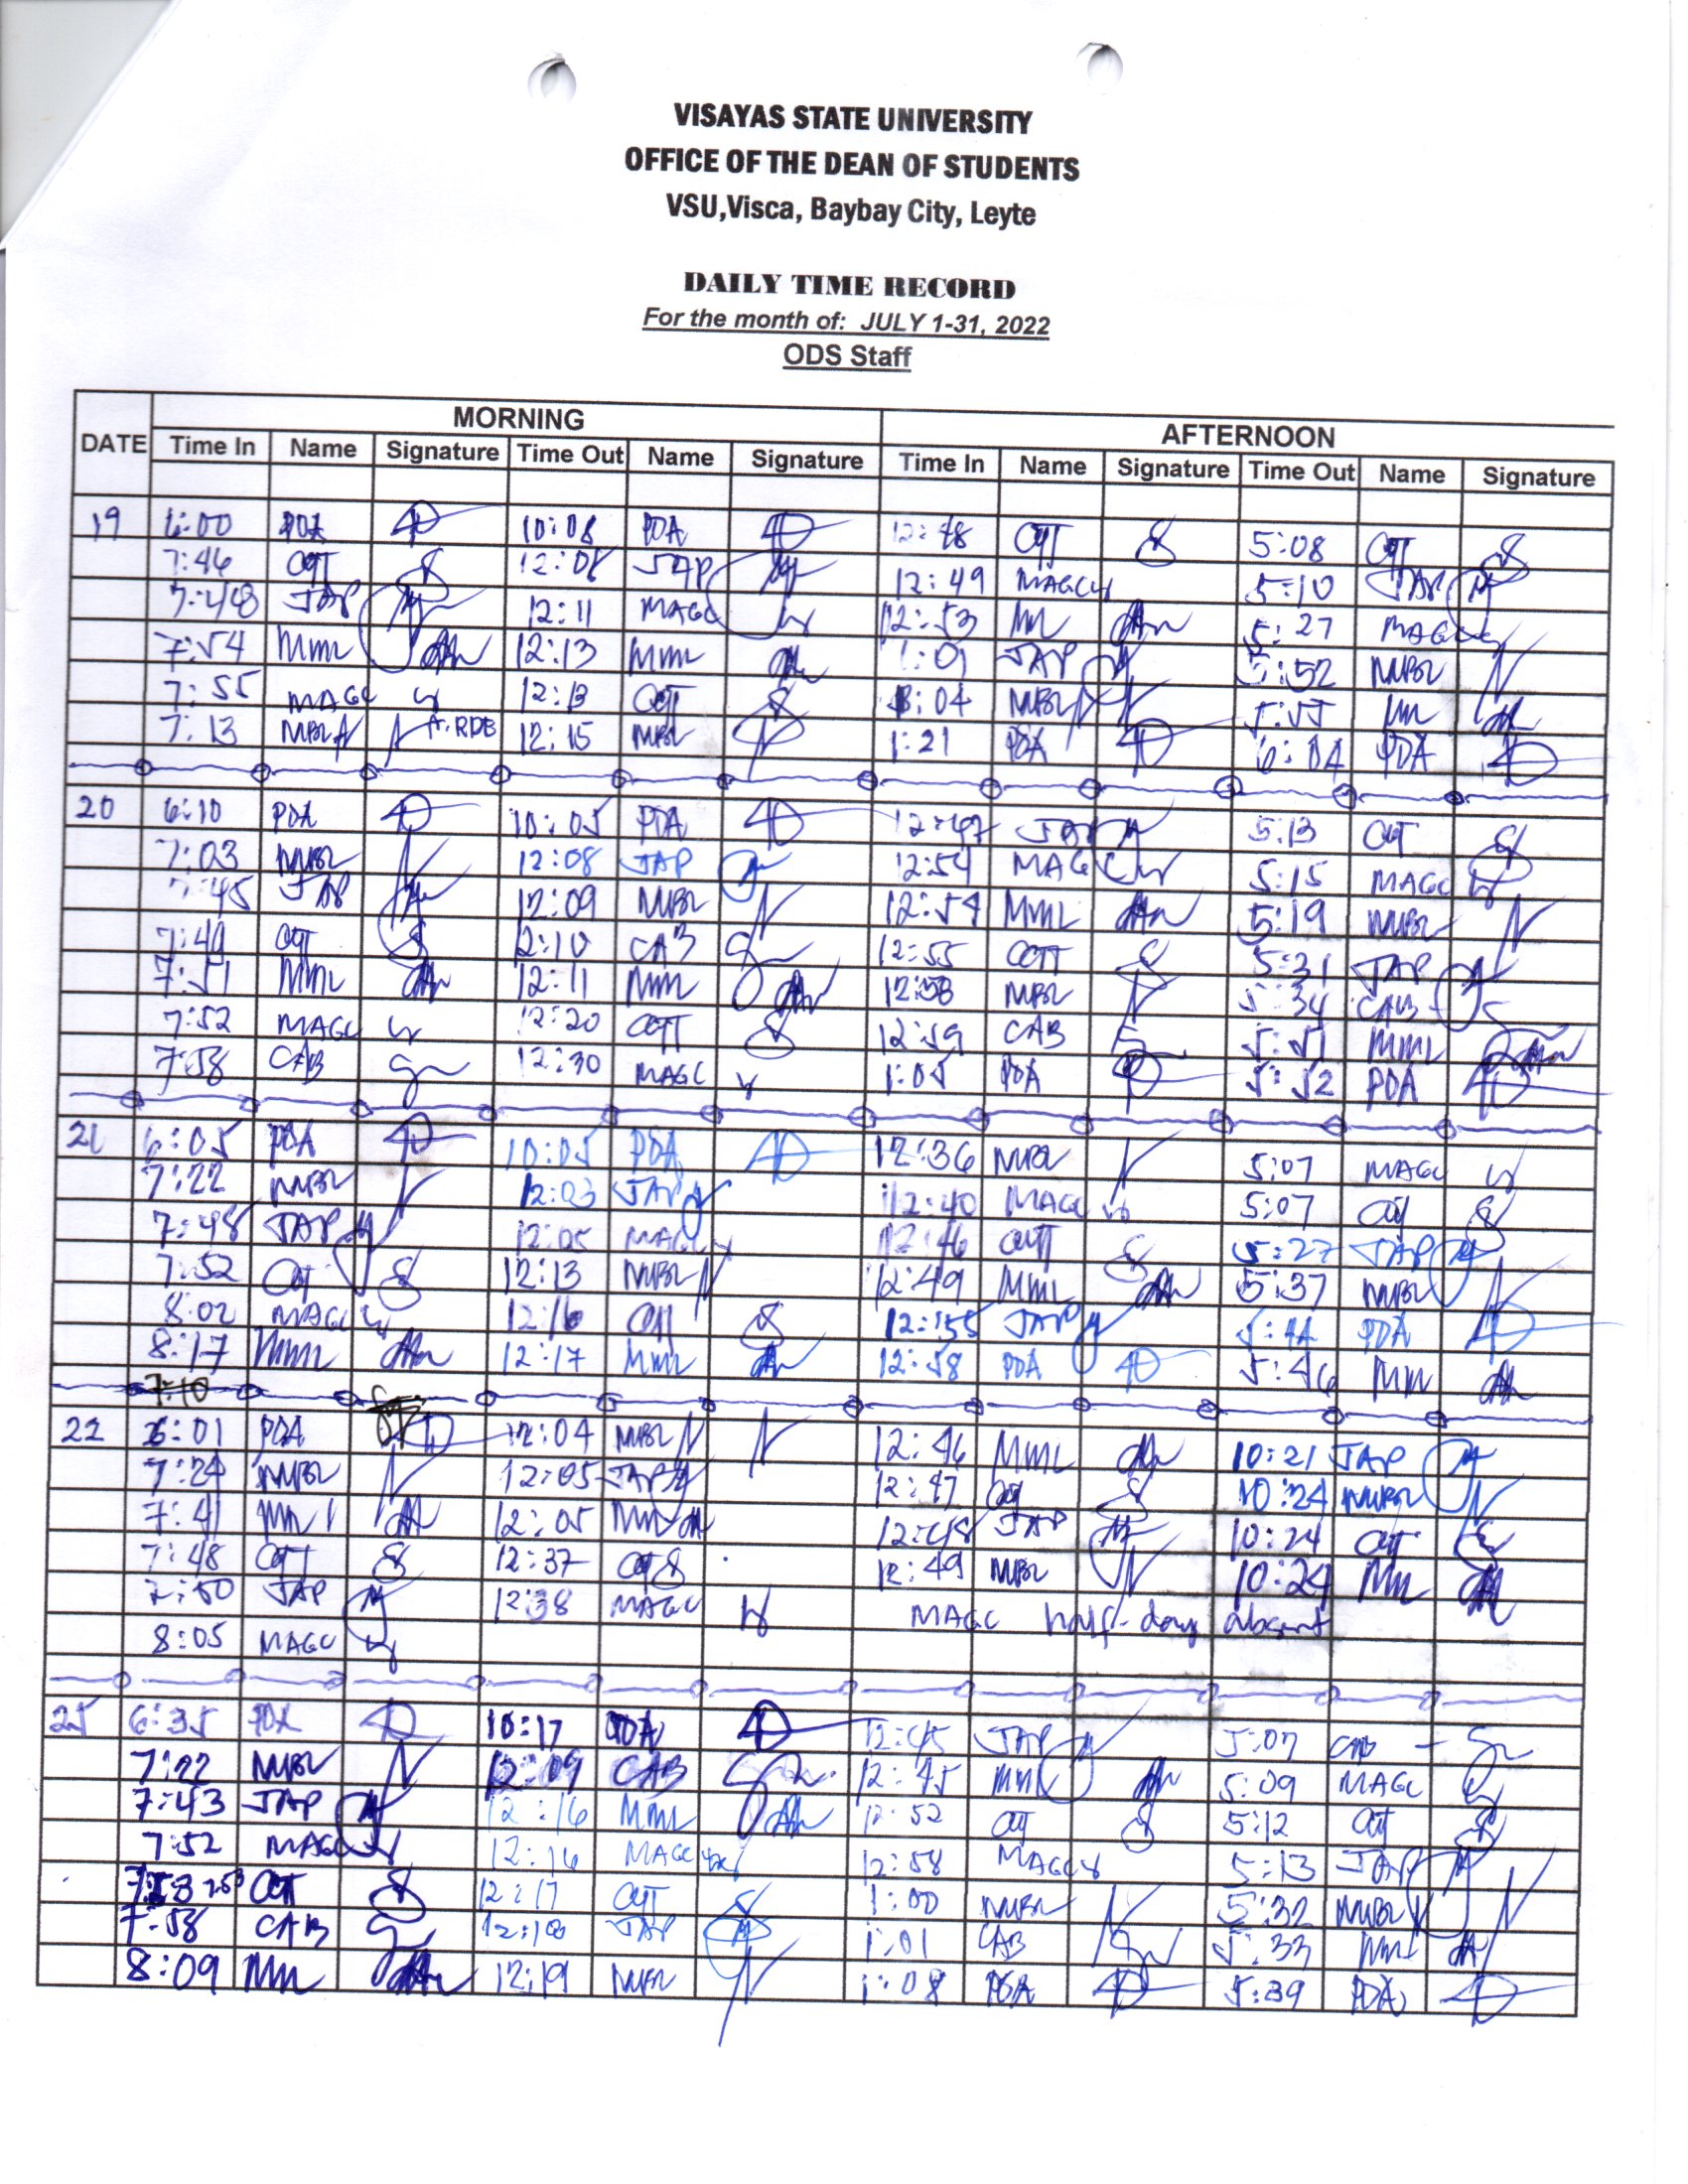 VISAYAS STATE UNIVERSITY
OFFICE OF THE DEAN OF STUDENTS
VSU,Visca, Baybay City, Leyte
DAILY TIME RECORD
For the month of: JULY 1-31, 2022
ODS Staff
DATE MORNING AFTERNOON
Time In Name Signature Time Out Name Signature Time In Name Signature Time Out Name Signature
19 6:00 PDA 10:08 PDA 12:48 5:08
7:46 12:08 JAP 12:49 MAGC 5:10 JAP
7:48 JAP 12:11 MAGC 12:53 5:27 MAGC
7:54 MML 12:13 MML 1:01 JAP 5:52 MBL
7:55 MAGC 12:13 1:04 MBL 5:55
7:13 MBL A.RDB 12:15 MBL 1:21 PDA 6:04 PDA
20 6:10 PDA 10:05 PDA 12:47 JAP 5:13
7:03 MBL 12:08 JAP 12:54 MAGC 5:15 MAGC
7:45 JAP 12:09 MBL 12:54 MML 5:19 MBL
7:49 12:10 CAB 12:55 5:31 JAP
7:51 MML 12:11 MML 12:58 MBL 5:34 CAB
7:52 MAGC 12:20 12:59 CAB 5:51 MML
7:58 CAB 12:30 MAGC 1:05 PDA 5:52 PDA
21 6:05 PDA 10:05 PDA 12:36 MBL 5:07 MAGC
7:22 MBL 12:03 JAP 12:40 MAGC 5:07
7:48 JAP 12:05 MAGC 12:46 5:27 JAP
7:52 12:13 MBL 12:49 MML 5:37 MBL
8:02 MAGC 12:16 12:55 JAP 5:44 PDA
8:17 MML 12:17 MML 12:58 PDA 5:46 MML
7:10
22 6:01 PDA 12:04 MBL 12:46 MML 10:21 JAP
7:24 MBL 12:05 JAP 12:47 10:24 MBL
7:41 MML 12:05 MML 12:48 JAP 10:24
7:48 12:37 12:49 MBL 10:24 MML
7:50 JAP 12:38 MAGC MAGC half-day absent
8:05 MAGC
25 6:35 PDA 10:17 PDA 12:45 JAP 5:07 CAB
7:22 MBL 12:09 CAB 12:45 MML 5:09 MAGC
7:43 JAP 12:16 MML 12:52 5:12
7:52 MAGC 12:16 MAGC 12:58 MAGC 5:13 JAP
7:53 12:17 1:00 MBL 5:32 MBL
7:58 CAB 12:18 JAP 1:01 CAB 5:33 MML
8:09 MML 12:19 MBL 1:08 PDA 5:39 PDA